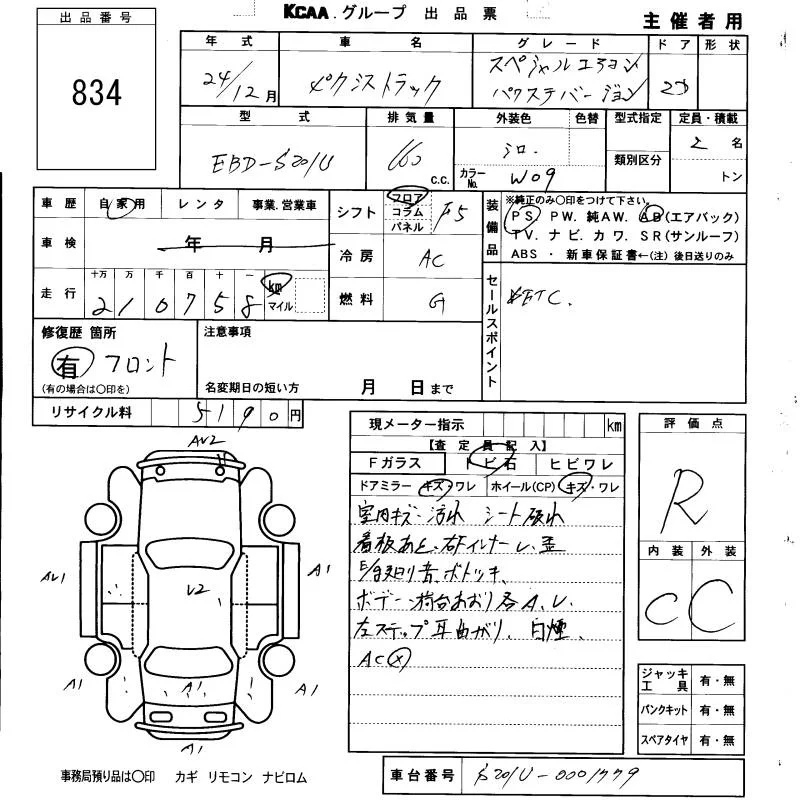 KCAA.グループ 出品票
主催者用
出品番号
834
年式 車名 グレード ドア 形状
24/12月 ピクシストラック スペシャルエディション 2D
パワステバージョン
型式 排気量 外装色 色替 型式指定 定員・積載
EBD-S201U 660 c.c. シロ. 2名
カラーNo. W09 類別区分 トン
車歴 自家用 レンタ 事業.営業車
車検 年 月
走行 十万 万 千 百 十 一
210758 km マイル
シフト フロア コラム パネル F5
冷房 AC
燃料 G
装備品
※純正のみ〇印をつけて下さい。
PS PW. 純AW. AB(エアバック)
TV. ナビ. カワ. SR(サンルーフ)
ABS ・ 新車保証書←(注) 後日送りのみ
セールスポイント
ETC.
修復歴 箇所
有 フロント
(有の場合は〇印を)
注意事項
名変期日の短い方 月 日まで
リサイクル料 5190円
現メーター指示 km
【査定員記入】
Fガラス トビ石 ヒビワレ
ドアミラー キズ・ワレ ホイール(CP) キズ・ワレ
室内キズ・汚れ シート破れ
看板あと、右ドインナーU、歪
ボデー・荷台あおり各A、U.
左ステップ耳曲がり、白煙、
AC X
評価点
R
内装 外装
C C
ジャッキ工具 有・無
パンクキット 有・無
スペアタイヤ 有・無
AU2
AU1
A1
U2
A1
A1
A1
A1
事務局預り品は〇印 カギ リモコン ナビロム
車台番号 S201U-0001779